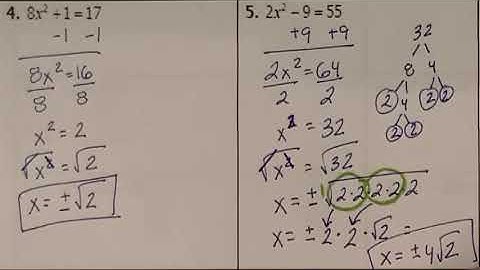 4. 8x² + 1 = 17
-1 -1
8x² = 16
8 8
x² = 2
√x² = √2
x = ± √2
5. 2x² − 9 = 55
+9 +9
2x² = 64
2 2
x² = 32
√x² = √32
x = ± √2·2·2·2·2
x = ± 2 · 2 · √2 =
x = ± 4√2
32
8 4
2 4 2 2
2 2